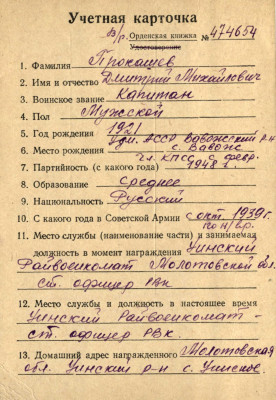 Учетная карточка
В/р. Орденская книжка № 474654
Удостоверение
1. Фамилия Прокашев
2. Имя и отчество Дмитрий Михайлович
3. Воинское звание Капитан
4. Пол Мужской
5. Год рождения 1921
6. Место рождения Удм. АССР Вавожский р-н
с. Вавож
7. Партийность (с какого года) чл. КПСС с февр.
1948 г.
8. Образование среднее
9. Национальность Русский
10. С какого года в Советской Армии с окт. 1939г.
по н/вр.
11. Место службы (наименование части) и занимаемая
должность в момент награждения Уинский
Райвоенкомат Молотовской обл.
ст. офицер РВК
12. Место службы и должность в настоящее время
Уинский Райвоенкомат-
ст. офицер РВК.
13. Домашний адрес награжденного Молотовская
обл. Уинский р-н с. Уинское.